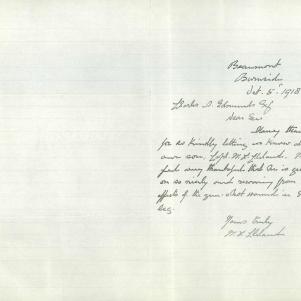 Beaumont
Burnside
Oct. 5. 1918
Charles D. Edmunds Esq
Dear Sir
Many than
for so kindly letting us know
our son. Capt. M.
feel very thankful that he is ge
on so nicely and recovering from
effects of the gun-shot wounds in
leg.
Yours truly